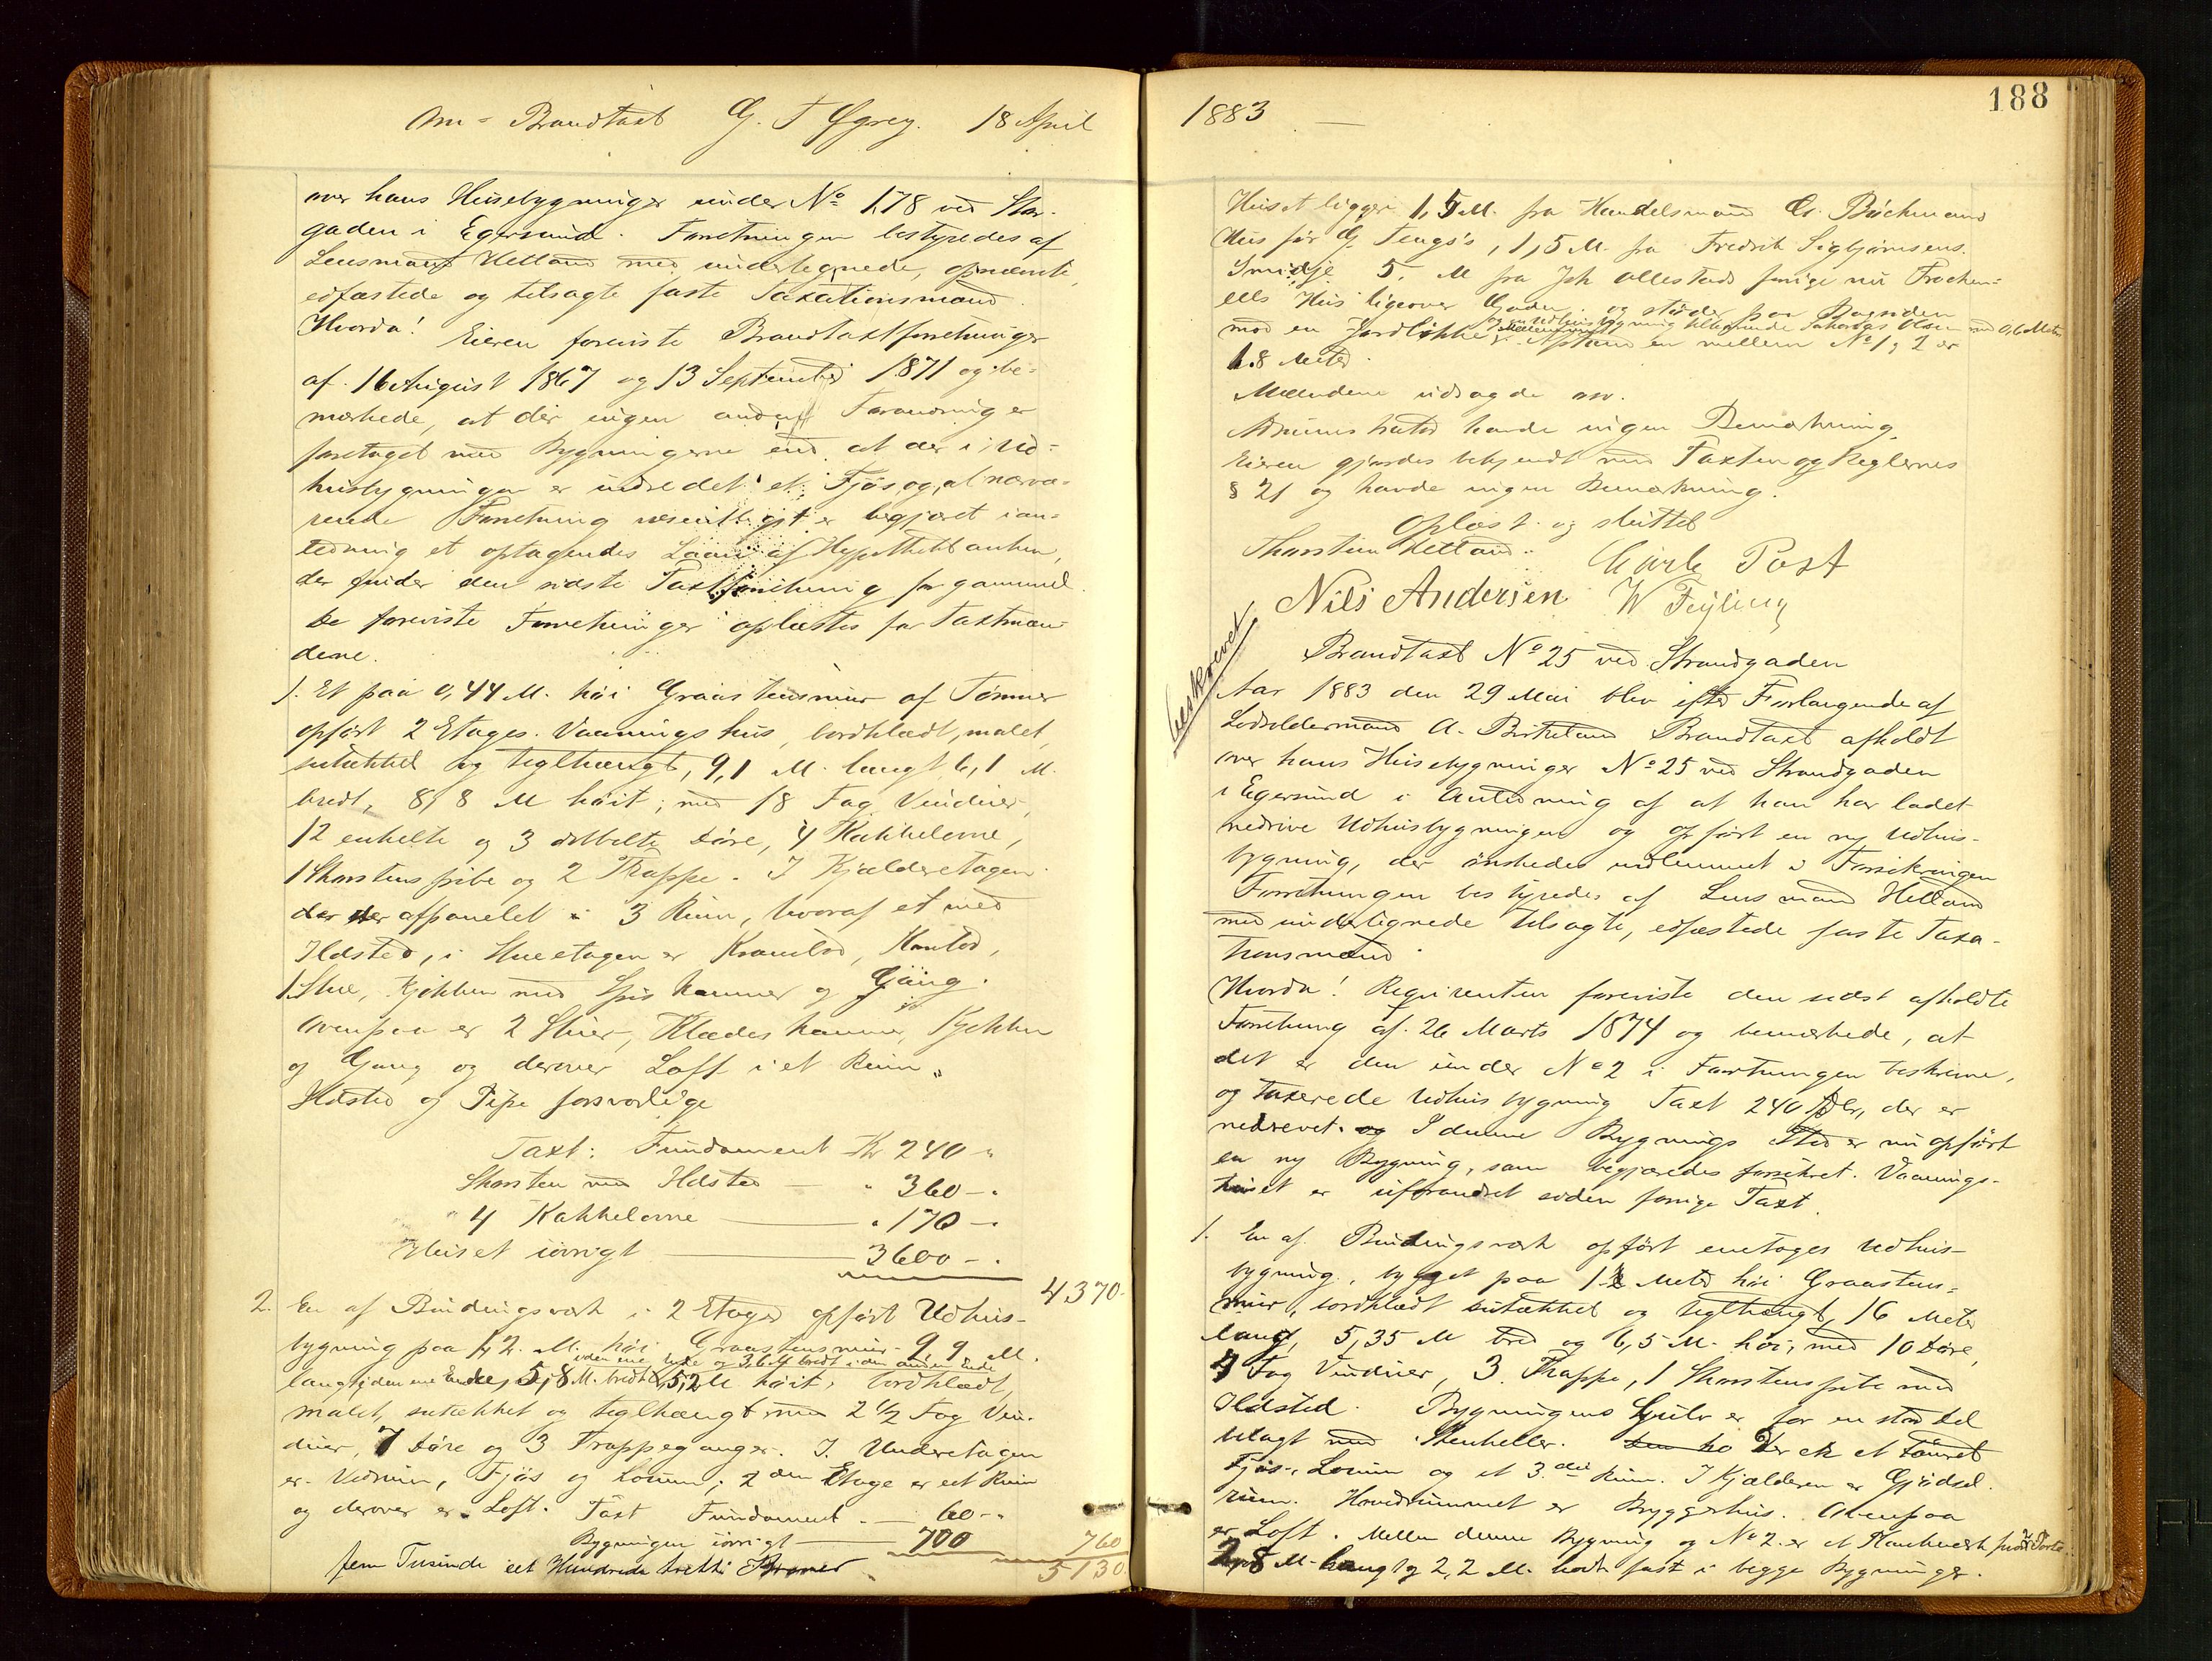 Om- Brandtaxt G. T Øgrey. 18 April
over hans Husebygninger under No 178 ved Stor-
gaden i Egersund. Forretningen bestyredes af
Lensmand Helland med undertegnede, opnævnte,
edfæstede og tilsagte faste Taxationsmænd.
Hvorda! Eieren foreviste Brandtaxtforretninger
af 16 August 1867 og 13 September 1871 og be-
mærkede, at der ingen anden Forandring er
foretaget med Bygningerne end at der i Ud-
husbygningen er indredet et Fjøs, og at nærvæ-
rende Forretning væsentligst er begjæret i an-
ledning et optagendes Laan af Hypothekbanken,
der finder den sidste Taxtforretning for gammel.
De foreviste Forretninger oplæstes for Taxtmæn-
dene.
1. Et paa 0,44 M. høi Graastensmur af Tømmer
opført 2 Etages Vaaningshus, bordklædt, malet,
sutækket og teglhængt, 9,1 M. langt 6,1 M.
bredt, 8,8 M høit; med 18 Fag Vinduer,
12 enkelte og 3 dobbelte Døre, 4 Kakkelovne,
1 Skorstenspibe og 2 Trappe. I Kjælderetagen
der er afpanelet i 3 Rum, hvoraf et med
Ildsted, i Stueetagen er Krambod, Kontor,
1 Stue, Kjøkken med Spiskammer og Gang.
Ovenpaa er 2 Stuer, Klædeskammer, Kjøkken
og Gang og derover Loft i et Rum.
Ildsted og Pipe forsvarlige
Taxt: Fundament Kr 240 "
Skorsten med Ildsted — " 360 - "
4 Kakkelovne — " 170 - "
Huset iøvrigt 3600 - "
4370.
2. En af Bindingsværk i 2 Etager opført Udhus-
bygning paa 1,2 M. høi Graastensmur 9,9 M.
i den ene Ende og 3,6 M bredt i den anden Ende
langt, i den ene Ende, 5,8 M. bredt, 5,2 M høit, bordklædt,
malet, sutækket og teglhængt med 2 1/2 Fag Vin-
duer, 7 Døre og 3 Trappegange. I Underetagen
er Vedrum, Fjøs og Lorum; 2den Etage er eet Rum
og derover er Loft. Taxt Fundament — 60 -"
Bygningen iøvrigt — 700 760
fem Tusinde eet Hundrede tretti Kroner 5130.
1883 —
188
Huset ligger 1,5 M. fra Handelsmand Chr. Büchmanns
Hus før G Tengs's, 1,5 M. fra Fredrik Sigbjørnsens
Smidje 5, M fra Joh Ollestads forrige nu Trochm-
ells Hus ligeover Gaden og støder paa Bagsiden
og en Udhusbygning tilhørende Zakarias Olsen med 0,6 Meter
mod en Jordløkke. Afstanden mellem No 1 & 2 er
1.8 Meter.
Mændene udsagde osv.
Administrator havde ingen Bemærkning.
Eieren gjordes bekjendt med Taxten og Reglernes
§ 21 og havde ingen Bemærkning.
Oplæst og sluttet
Thorstein Helland. Carl Post
Nils Andersen W Feyling
beskrevet
Brandtaxt No 25 ved Strandgaden
Aar 1883 den 29 Mai blev efter Forlangende af
Lodsoldermand A. Birkeland Brandtaxt afholdt
over hans Husebygninger No 25 ved Strandgaden
i Egersund i Anledning af at han har ladet
nedrive Udhusbygningen og opført en ny Udhus-
bygning, der ønskedes indlemmet i Forsikringen
Forretningen bestyredes af Lensmand Helland
med undertegnede tilsagte, edfæstede faste Taxa-
tionsmænd
Hvorda! Rekvirenten foreviste den sidst afholdte
Forretning af 26 Marts 1874 og bemærkede, at
det er den under No 2 i Forretningen beskrevne,
og taxerede Udhusbygning Taxt 240 Spdlr, der er
nedrevet. og I denne Bygnings Sted er nu opført
en ny Bygning, som begjæredes forsikret. Vaanings-
huset er uforandret siden forrige Taxt.
1. En af Bindingsværk opført enetages Udhus-
bygning, bygget paa 1,2 Meter høi Graastens-
mur, bordklædt sutækket og teglhængt, 16 Meter
lang, 5,35 M bred og 6,5 M. høi, med 10 Døre,
4 Fag Vinduer, 3 Trappe, 1 Skorstenspibe med
Ildsted. Bygningens Gulv er for en stor Del
belagt med Stenheller. Der er et
Fjøs, Lorum og et 3die Rum. I Kjælderen er Gjødsel-
rum. Hovedrummet er Bryggerhus. Ovenpaa
er Loft. Mellem denne Bygning og No 2 er et Plankeværk med Port
2,8 M. langt og 2,2 M. høit fast i begge Bygninger.